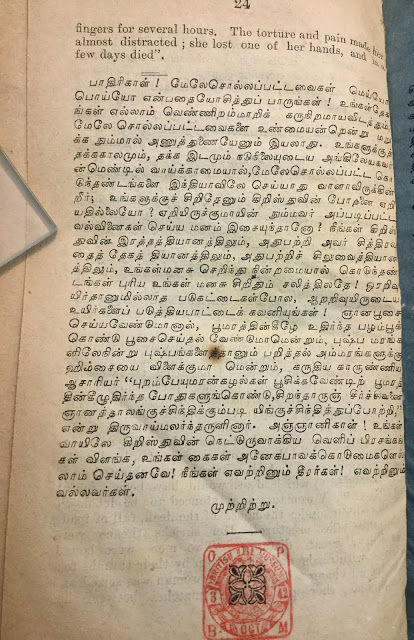 24
fingers for several hours. The torture and pain made her
almost distracted ; she lost one of her hands, and in a
few days died”.
பாதிரிகாள் ! மேலேசொல்லப்பட்டவைகள் மெய்யோ
பொய்யோ என்பதையோசித்துப் பாருங்கள் ! உங்கள்தேச
ங்கள் எல்லாம் வெண்ணிறம்மாறிக் கருநிறமாயவிடத்தும்
மேலே சொல்லப்பட்டவைகளை உண்மையன்றென்று மறு
க்க நும்மால் அணுத்துணையேனும் இயலாது. உங்களுக்குத்
தக்ககாலமும், தக்க இடமும் நடுநிலையுடைய அங்கிலேயகவர்
ன்மெண்டில் வாய்க்காமையால், மேலேசொல்லப்பட்ட கொ
டுந்தண்டங்களை இந்தியாவிலே செய்யாது வாளாவிருக்கின்
றீர்; உங்களுக்குச் சிறிதேனும் கிறிஸ்துவின் போதனை ஏறி
யதில்லையோ ? ஏறியிருக்குமாயின் நும்மவர் அப்படிப்பட்ட
வல்வினைகள் செய்ய மனம் இசையுந்தானோ? நீங்கள் கிறிஸ்
துவின் இரத்தத்தியானத்திலும், அதுபற்றி அவர் சித்திரவ
தைத் தேகத் தியானத்திலும், அதுபற்றிச் சிலுவைத்தியான
த்திலும், உங்கள்மனசு செறிந்து நின்றமையால் கொடுந்தண்
டங்கள் புரிய உங்கள் மனசு சிறிதும் சலித்திலதே! ஓரறிவு
யிர்தானுமில்லாத படுகட்டைகள்போல, ஆறறிவுயிருடைய
உயிர்களைப் படுத்தியபாட்டைக் கவனியுங்கள் ! ஞானபூசை
செய்யவேண்டுமானால், பூமரத்தின்கீழே உதிர்ந்த பழம்பூக்
கொண்டு பூசைசெய்தல் வேண்டுமாமென்றும், புஷ்ப மரங்க
ளிலேநின்று புஷ்பங்களைத்தானும் பறித்தல் அம்மரங்களுக்கு
ஹிம்சையை விளைக்குமா மென்றும், கருதிய காருண்ணிய
ஆசாரியர் “புறம்பேயுமரன்கழல்கள் பூசிக்கவேண்டிற் பூமரத்
தின்கீழுதிர்ந்த போதுகளுங்கொண்டு, சிறந்தாருஞ் சிர்ச்சுவணை
ஞானத்தாலங்குச்சிந்திக்கும்படி யிங்குச்சிந்தித்துப்போற்றி,”
என்று திருவாய்மலர்ந்தருளினார். அஞ்ஞானிகாள் ! உங்கள்
வாயிலே கிறிஸ்துவின் நெட்டுருவாக்கிய வெளிப் பிரசங்கங்
கள் விளங்க, உங்கள் கைகள் அனேகபாவக்கொடுமைகளெல்
லாம் செய்தனவே! நீங்கள் எவற்றினும் தீரர்கள்! எவற்றினும்
வல்லவர்கள்.
முற்றிற்று.
O P
B M